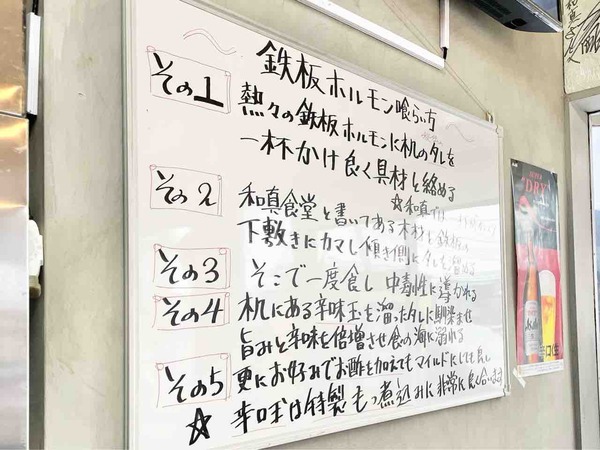 鉄板ホルモン喰らい方
その1
熱々の鉄板ホルモンに机のタレを
一杯かけ良く具材と絡める
☆和真では
その2
和真食堂と書いてある木材を鉄板の
下敷きにカマし傾き側にタレを溜める
その3
そこで一度食し中毒性に導かれる
その4
机にある辛味玉を溜ったタレに馴染ませ
旨みと辛味を倍増させ食の海に溺れる
その5
更にお好みでお酢を加えてもマイルドにしても良し
☆ 辛口ぼは特製もつ煮込みに非常に良く合います
DRY
Asahi